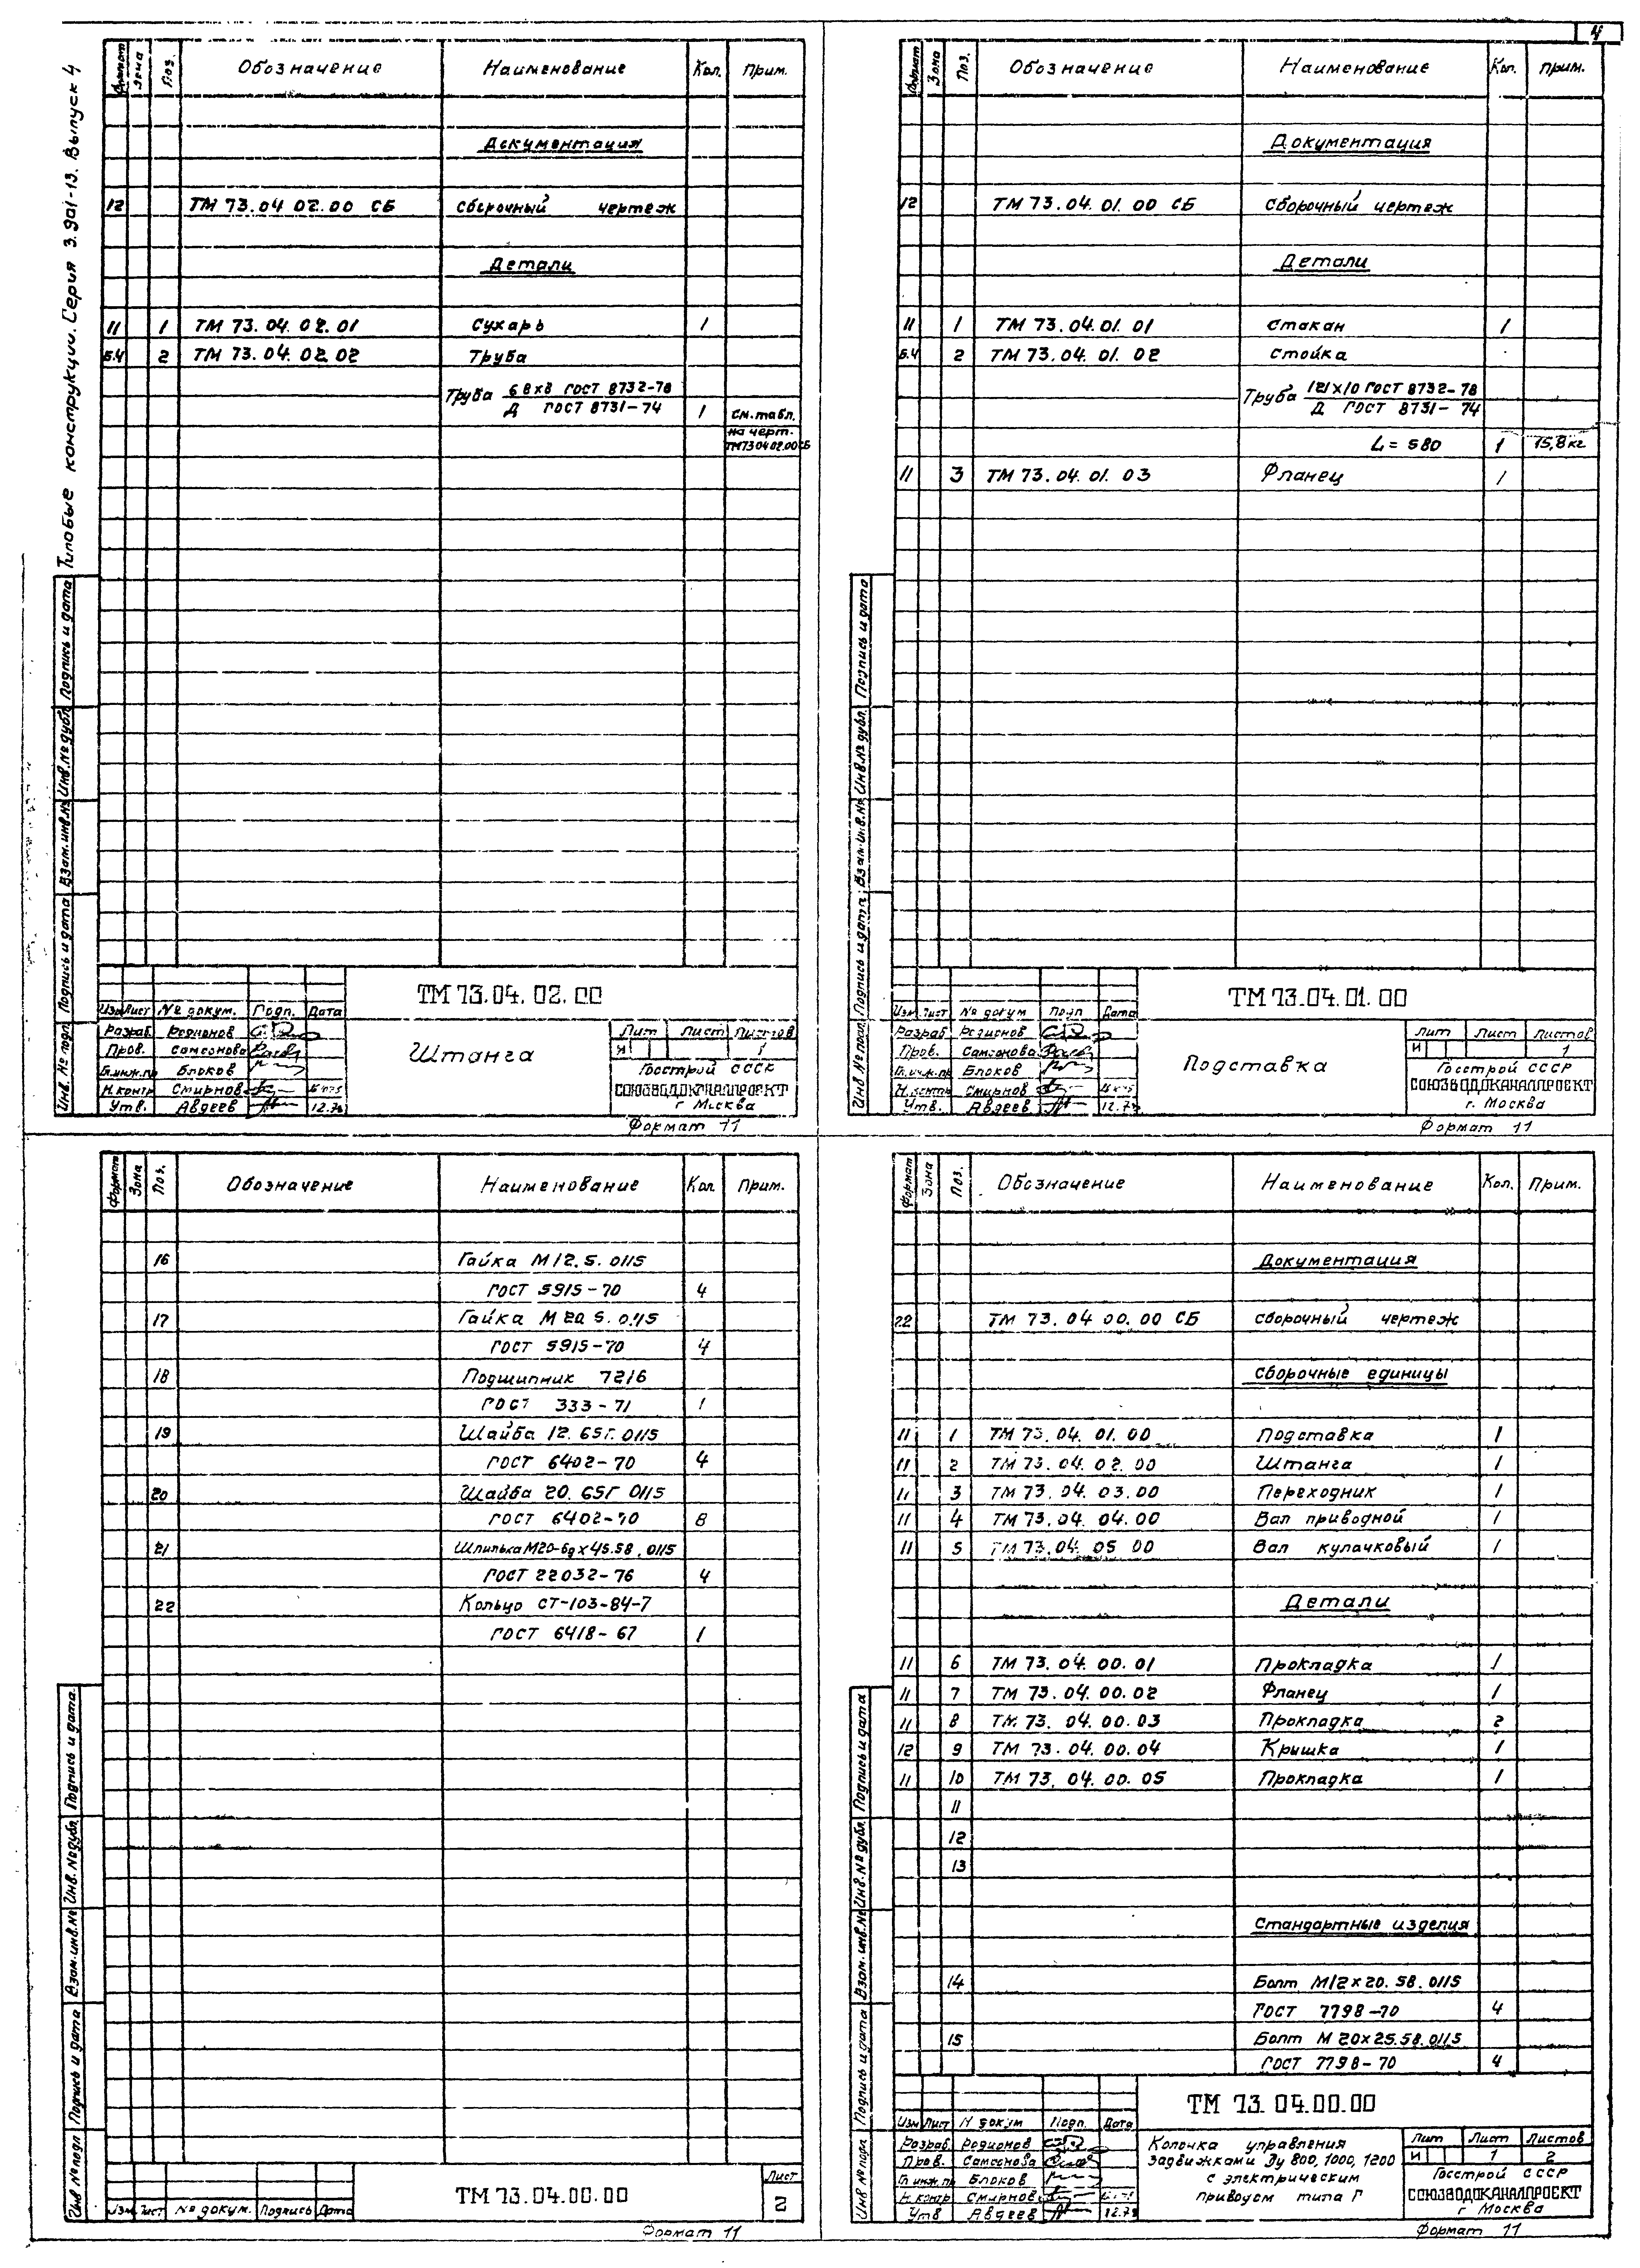 4
Типовые конструкции. Серия 3.901-13. Выпуск 4
Формат Зона Поз. Обозначение Наименование Кол. Прим.
Документация
12 ТМ 73.04 02.00 СБ Сборочный чертеж
Детали
11 1 ТМ 73.04.02.01 Сухарь 1
Б.Ч 2 ТМ 73.04.02.02 Труба
Труба 68х8 ГОСТ 8732-78
Д ГОСТ 8731-74 1 См.табл.
на черт.
ТМ73 04 02.00 СБ
Инв. № подл Подпись и дата Взам.инв.№ Инв.№ дубл. Подпись и дата
ТМ 73.04.02.00
Изм Лист № докум. Подп. Дата
Разраб Родионов
Пров. Самсонова
Гл.инж.пр Блоков
Н.контр Смирнов
Утв. Авдеев 12.78
Штанга
Лит Лист Листов
И 1
Госстрой СССР
СОЮЗВОДОКАНАЛПРОЕКТ
г Москва
Формат 11
Формат Зона Поз. Обозначение Наименование Кол. Прим.
Документация
12 ТМ 73.04.01.00 СБ Сборочный чертеж
Детали
11 1 ТМ 73.04.01.01 Стакан 1
Б.Ч 2 ТМ 73.04.01.02 Стойка
Труба 121х10 ГОСТ 8732-78
Д ГОСТ 8731-74
L=580 1 15,8кг
11 3 ТМ 73.04.01.03 Фланец 1
Инв № подл. Подпись и дата Взам.инв.№ Инв.№ дубл. Подпись и дата
ТМ 73.04.01.00
Изм. Лист № докум Подп Дата
Разраб Родионов
Пров. Самсонова
Гл.инж.пр Блоков
Н.контр Смирнов
Утв. Авдеев 12.78
Подставка
Лит Лист Листов
И 1
Госстрой СССР
СОЮЗВОДОКАНАЛПРОЕКТ
г. Москва
Формат 11
Формат Зона Поз. Обозначение Наименование Кол. Прим.
16 Гайка М12.5.0115
ГОСТ 5915-70 4
17 Гайка М20.5.0115
ГОСТ 5915-70 4
18 Подшипник 7216
ГОСТ 333-71 1
19 Шайба 12.65г.0115
ГОСТ 6402-70 4
20 Шайба 20.65Г 0115
ГОСТ 6402-70 8
21 Шпилька М20-6gх45.58.0115
ГОСТ 22032-76 4
22 Кольцо СТ-103-84-7
ГОСТ 6418-67 1
Инв № подл Подпись и дата Взам.инв.№ Инв.№ дубл. Подпись и дата
Изм Лист № докум. Подпись Дата
ТМ 73.04.00.00
Лист
2
Формат 11
Формат Зона Поз. Обозначение Наименование Кол. Прим.
Документация
22 ТМ 73.04 00.00 СБ Сборочный чертеж
Сборочные единицы
11 1 ТМ 73.04.01.00 Подставка 1
11 2 ТМ 73.04.02.00 Штанга 1
11 3 ТМ 73.04.03.00 Переходник 1
11 4 ТМ 73.04.04.00 Вал приводной 1
11 5 ТМ 73.04.05 00 Вал кулачковый 1
Детали
11 6 ТМ 73.04.00.01 Прокладка 1
11 7 ТМ 73.04.00.02 Фланец 1
11 8 ТМ 73.04.00.03 Прокладка 2
12 9 ТМ 73.04.00.04 Крышка 1
11 10 ТМ 73.04.00.05 Прокладка 1
11
12
13
Стандартные изделия
14 Болт М12х20.58.0115
ГОСТ 7798-70 4
15 Болт М20х25.58.0115
ГОСТ 7798-70 4
Инв № подл Подпись и дата Взам.инв.№ Инв.№ дубл. Подпись и дата
ТМ 73.04.00.00
Изм Лист N докум Подп. Дата
Разраб. Родионов
Пров. Самсонова
Гл.инж.пр Блоков
Н.контр Смирнов
Утв Авдеев 12.78
Колонка управления
задвижками Ду 800, 1000, 1200
с электрическим
приводом типа Г
Лит Лист Листов
И 1 2
Госстрой СССР
СОЮЗВОДОКАНАЛПРОЕКТ
г Москва
Формат 11